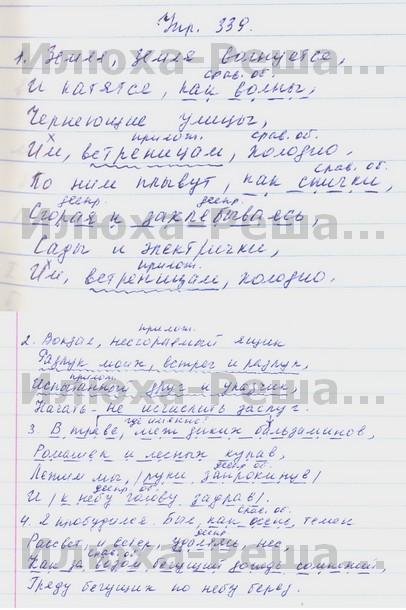 Упр. 339.
1. Земля, земля волнуется,
срав. об.
И катятся, как волны,
Чернеющие улицы,
прилож. срав. об.
Им, ветреницам, холодно.
срав. об.
По ним плывут, как спички,
деепр. деепр.
Сгорая и захлебываясь,
Сады и электрички,
прилож.
Им, ветреницам, холодно.
прилож.
2. Вокзал, несгораемый ящик
Разлук моих, встреч и разлук,
прилож.
Испытанный друг и указчик,
Начать - не исчислить заслуг.
где именно?
3. В траве, меж диких бальзаминов,
Ромашек и лесных купав,
деепр. об.
Лежим мы, руки запрокинув
деепр. об.
И к небу голову задрав.
срав. об.
4. Я пробудился. Был, как осень, темен
деепр.
Рассвет, и ветер, удаляясь, нес,
срав. об.
Как за возом бегущий дождь соломин,
Гряду бегущих по небу берез.
Илюха-Реша...
Илюха-Реша...
Илюха-Реша...
Илюха-Реша...
Илюха-Реша...
Илюха-Реша...
Илюха-Реша...
Илюха-Реша...